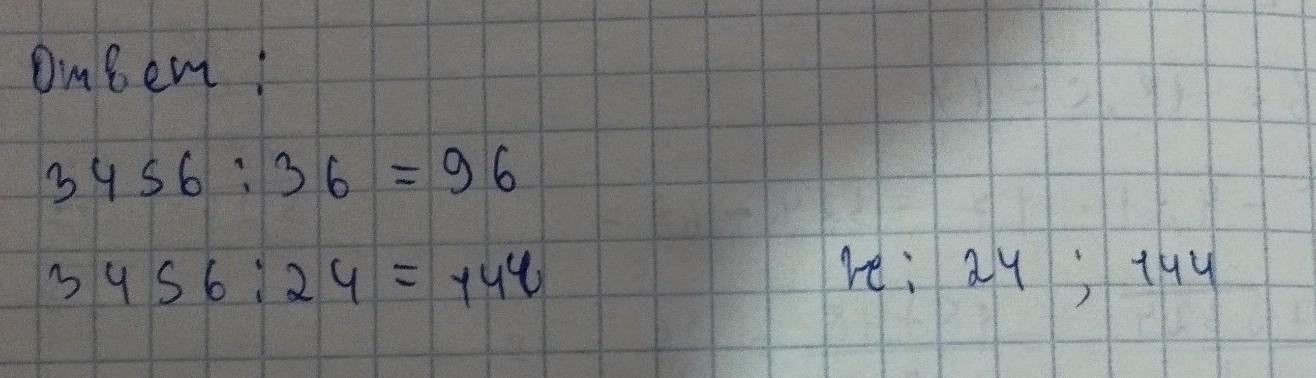 Ответ:
3456 : 36 = 96
3456 : 24 = 144
24 ; 144